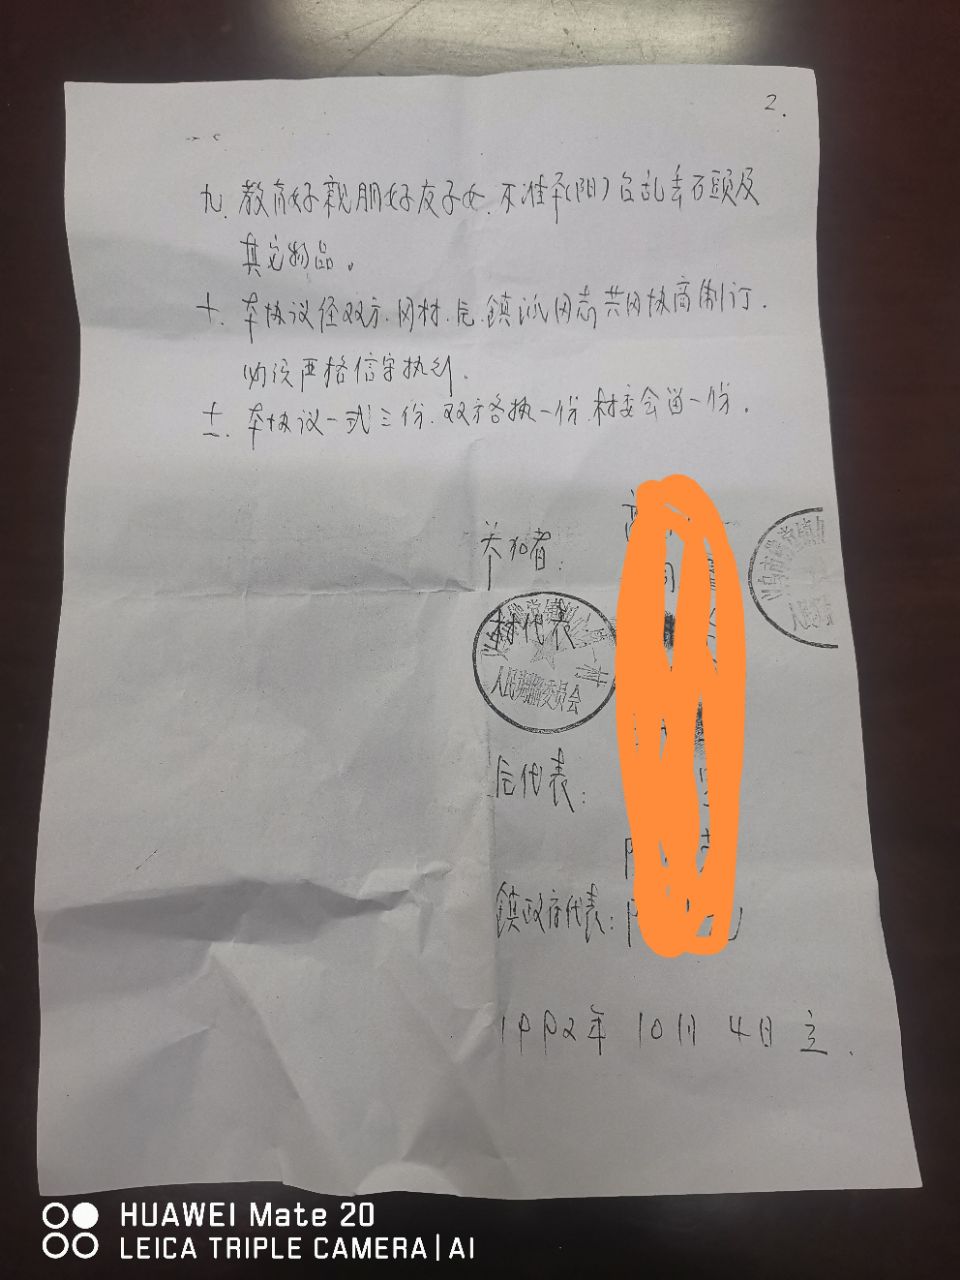 2.
九. 教育好亲朋好友子女. 不准平(阳)台乱丢石头及
其它物品。
十. 本协议经双方. 同村. 后. 镇派同志共同协商制订.
严格信守执行.
十一. 本协议一式三份. 双方各执一份. 村委会留一份.
参加者:
村代表
人民调解委员会
村
代表:
镇政府代表:
1992年 10月 4日 立.
义乌市
人民
HUAWEI Mate 20
LEICA TRIPLE CAMERA | AI